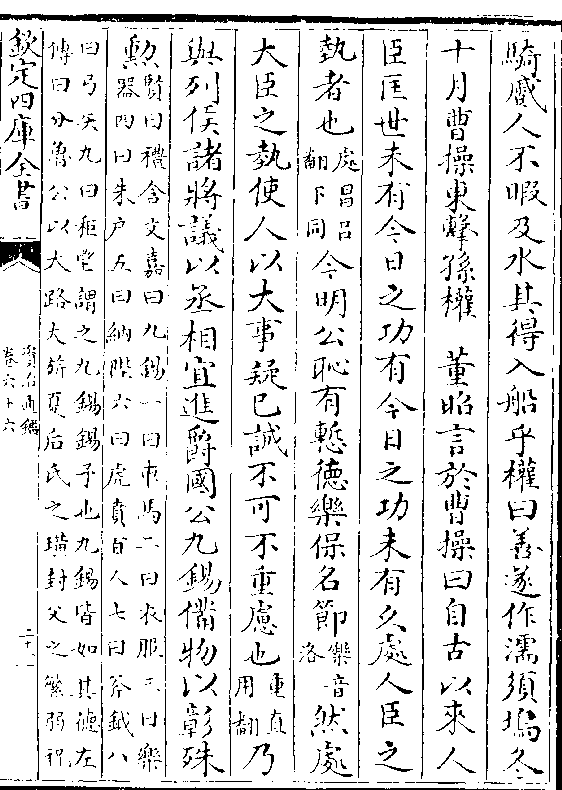 騎蹙人不暇及水其得入船乎權曰善遂作濡須塢冬
十月曹操東擊孫權　董昭言於曹操曰自古以來人
臣匡世未有今日之功有今日之功未有久處人臣之
執者也處昌呂翻下同今明公恥有慙德樂保名節樂音洛然處
大臣之執使人以大事疑已誠不可不重慮也重直用翻乃
與列侯諸將議以丞相宜進爵國公九錫僃物以彰殊
勲賢曰禮含文嘉曰九錫一曰車馬二曰衣服三曰樂器四曰朱户五曰納陛六曰虎賁百人七曰斧鉞八
曰弓矢九曰秬鬯謂之九錫錫予也九錫皆如其德左傳曰分魯公以大路大旂夏后氏之璜封父之繁弱祝
欽定四庫全書
資治通鑑
卷六十六